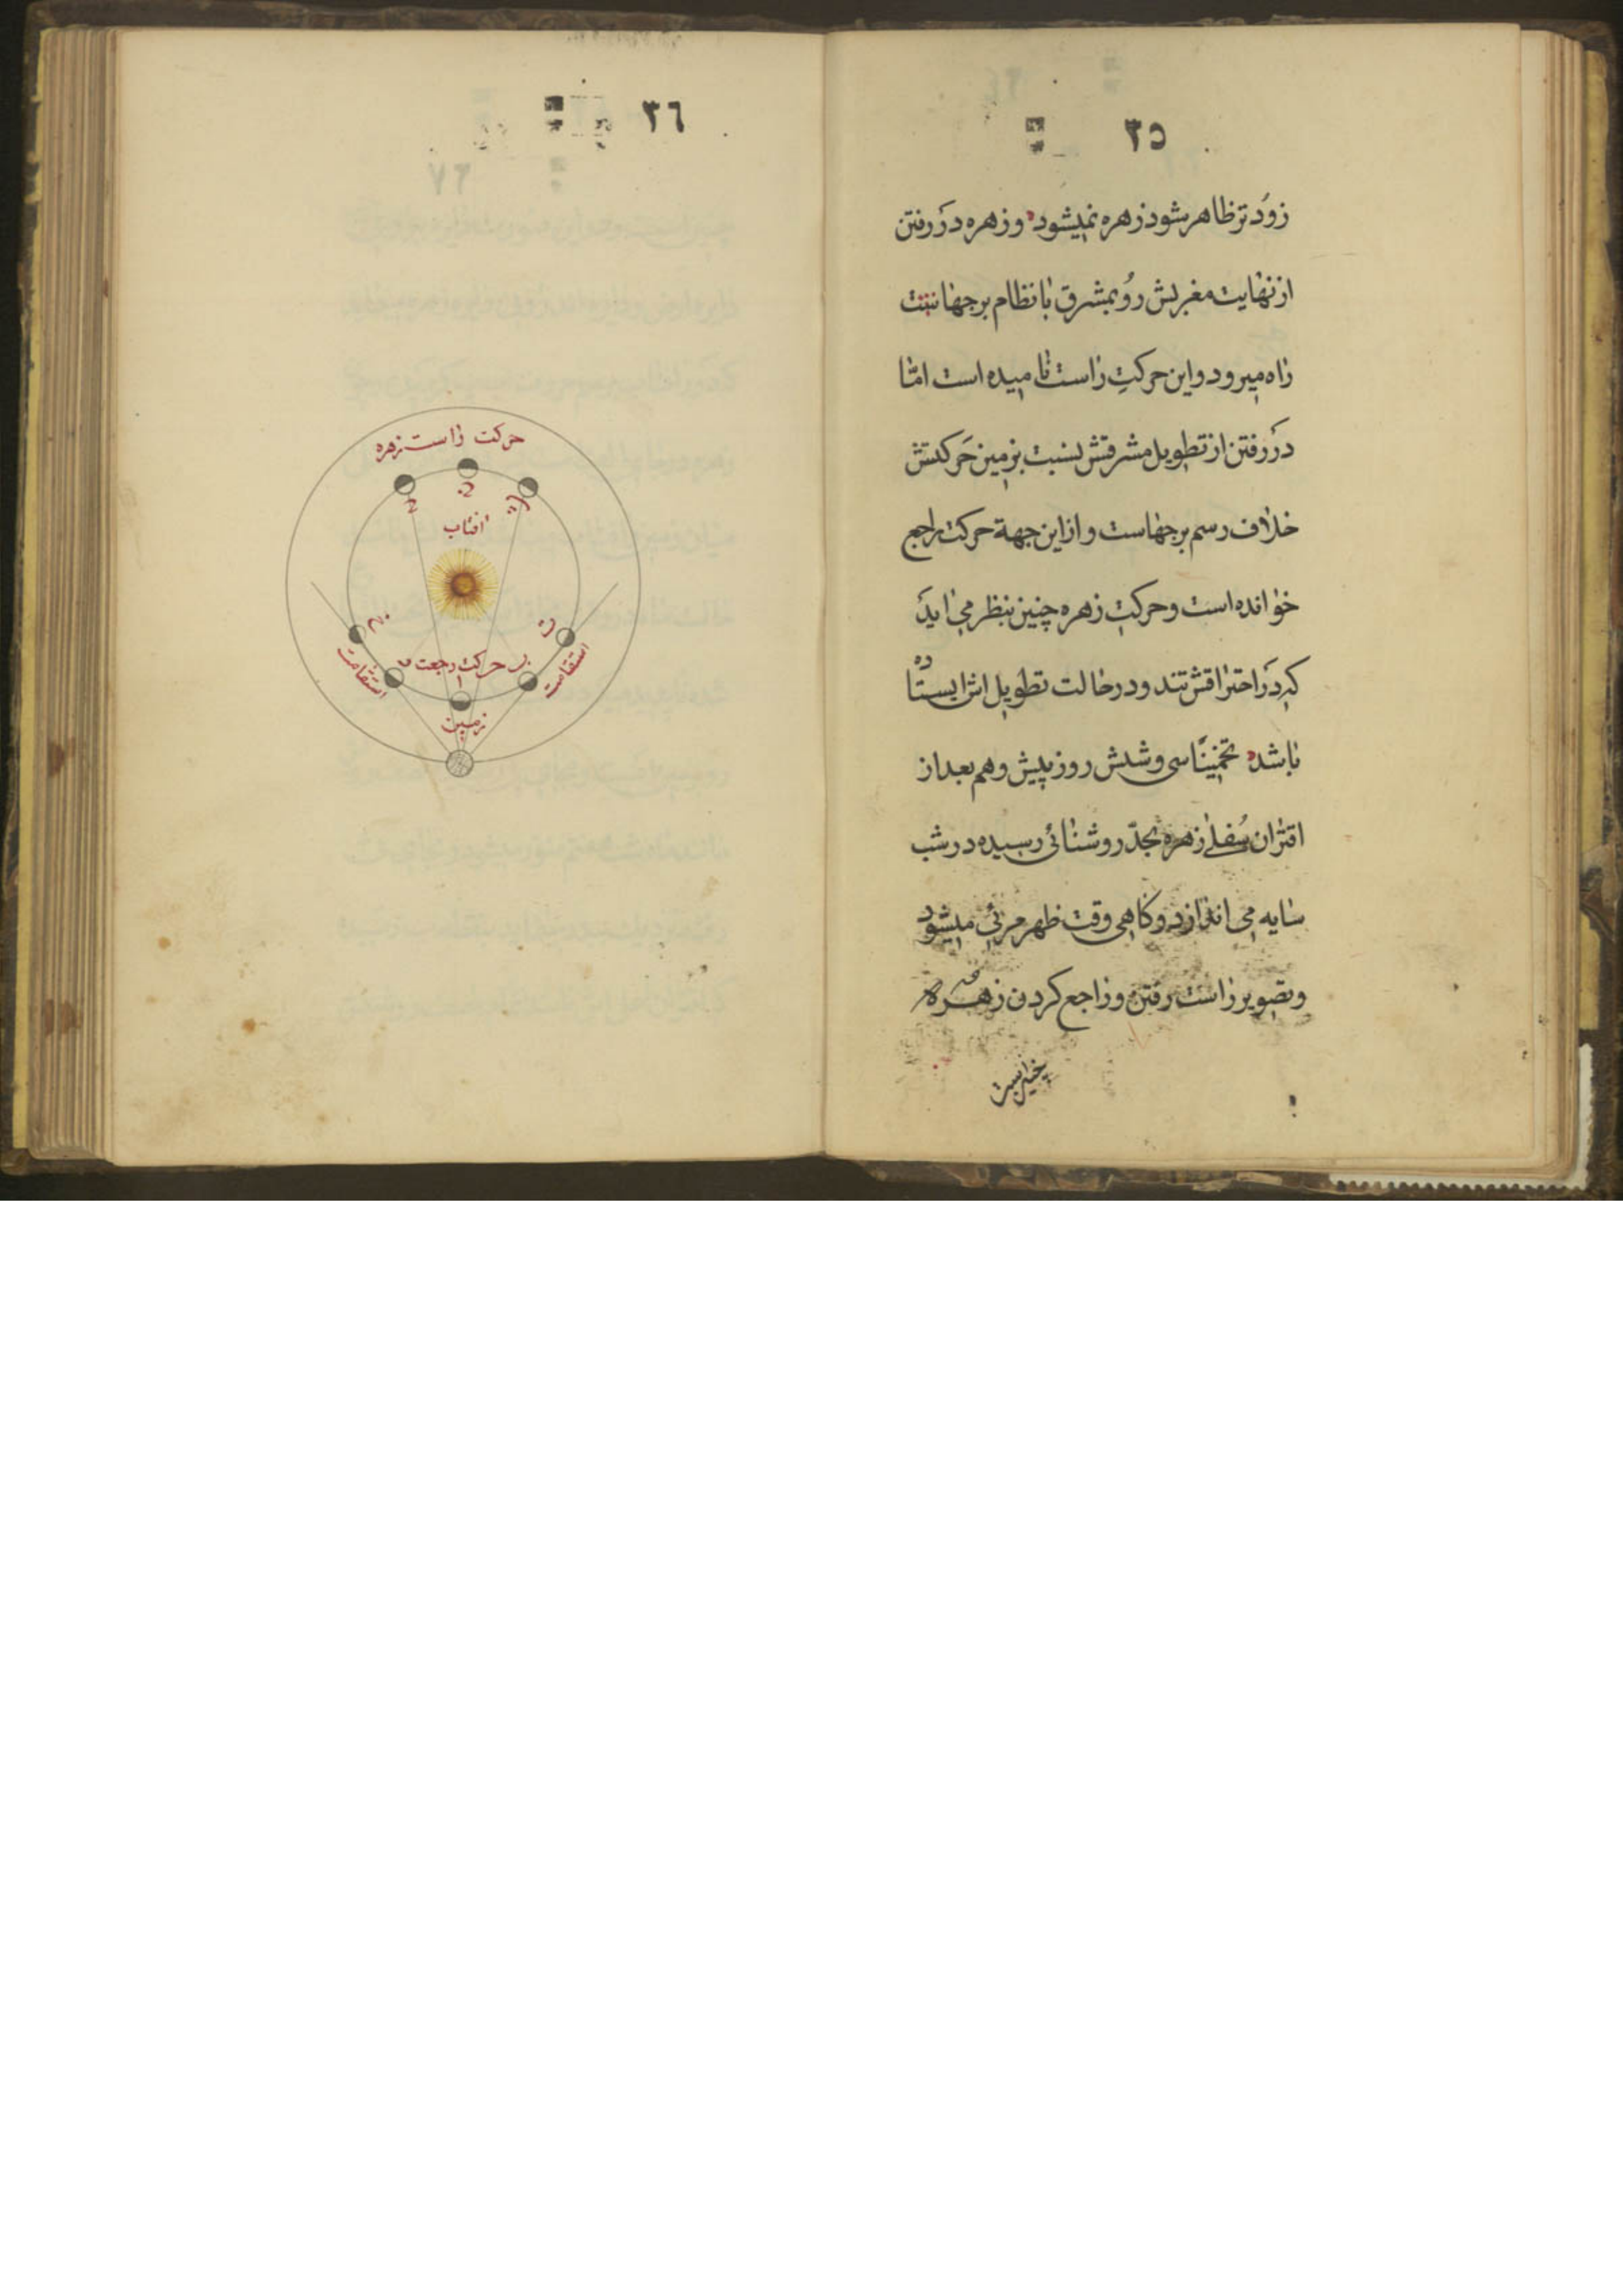 ٣٥
زوُد تر ظاهر شود زهره نمیشود و زهره در رفتن
از نهایت مغربش روُ بمشرق با نظام برجها
راه میرود و این حرکتِ راست نامیده است امّا
در رفتن از تطویل مشرقش نسبت بزمین حرکتش
خلاف رسم برجهاست و از این جهة حرکت راجع
خوانده است و حرکت زهره چنین بنظر می اید
که در احتراقش تند و در حالت تطویل اش ایستاده
باشد تخمیناً سی و شش روز پیش و هم بعد از
اقتران سُفلے زهره بحدّ روشنائی رسیده در شب
سایه می اندازد و کاهی وقت ظهر مرئی میشود
و تصویر راست رفتن و راجع کردن زهره
٣٦
حرکت راست زهره
افتاب
حرکت رجعت
استقامت
استقامت
زمین